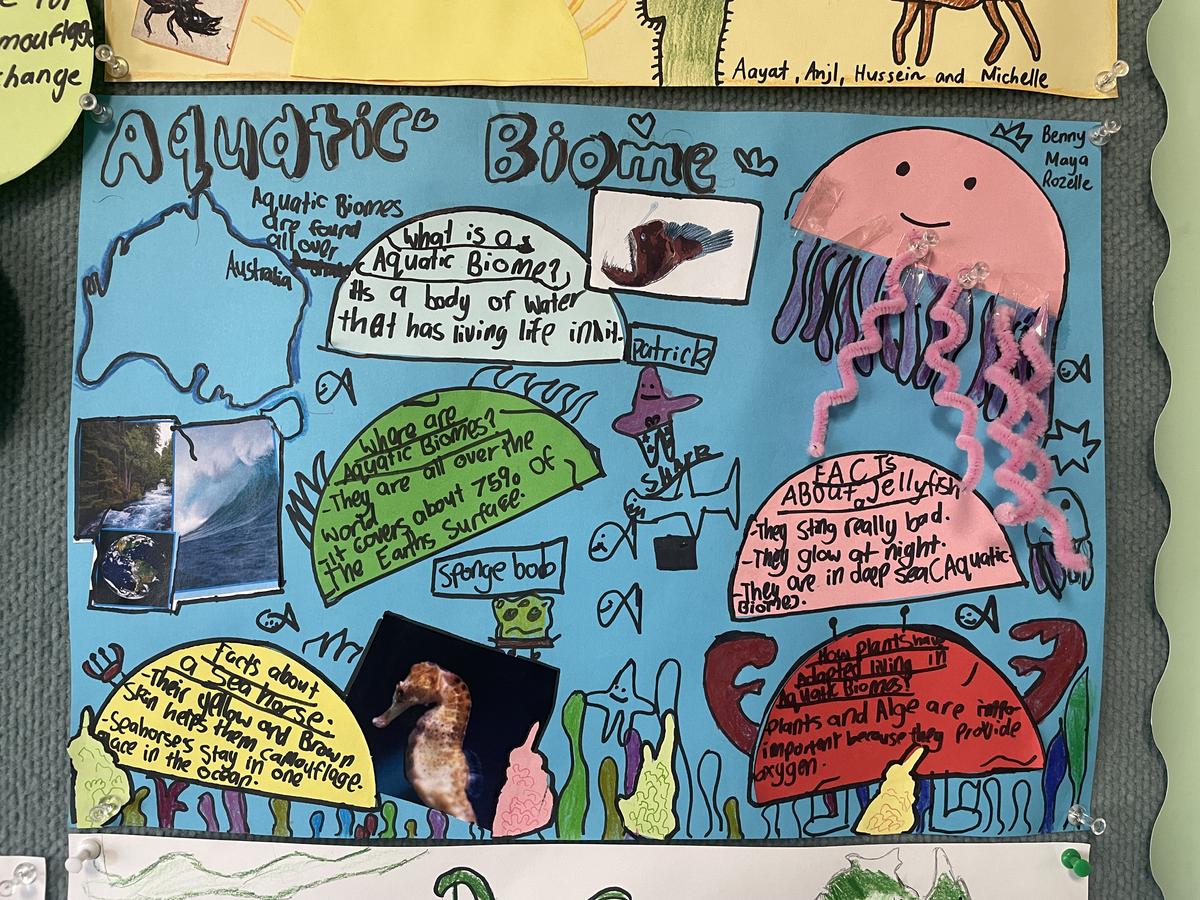 camouflage
change
Aayat, Anjl, Hussein and Michelle
Aquatic Biome
Benny
Maya
Rozelle
Aquatic Biomes
are found
all over
Australia
What is a
Aquatic Biome?
its a body of water
that has living life in it.
Patrick
Where are
Aquatic Biomes?
-They are all over the
world
-it covers about 75% of
The Earths Surface.
SHARK
Sponge bob
FACTS
ABOUT Jellyfish
-They sting really bad.
-They glow at night.
-They are in deep sea (Aquatic
Biome).
Facts about
a Sea horse.
-Their yellow and Brown
Skin helps them camouflage.
-Seahorse's stay in one
place in the ocean.
How plants have
adapted living in
Aquatic Biomes?
plants and Alge are
important because they provide
oxygen.